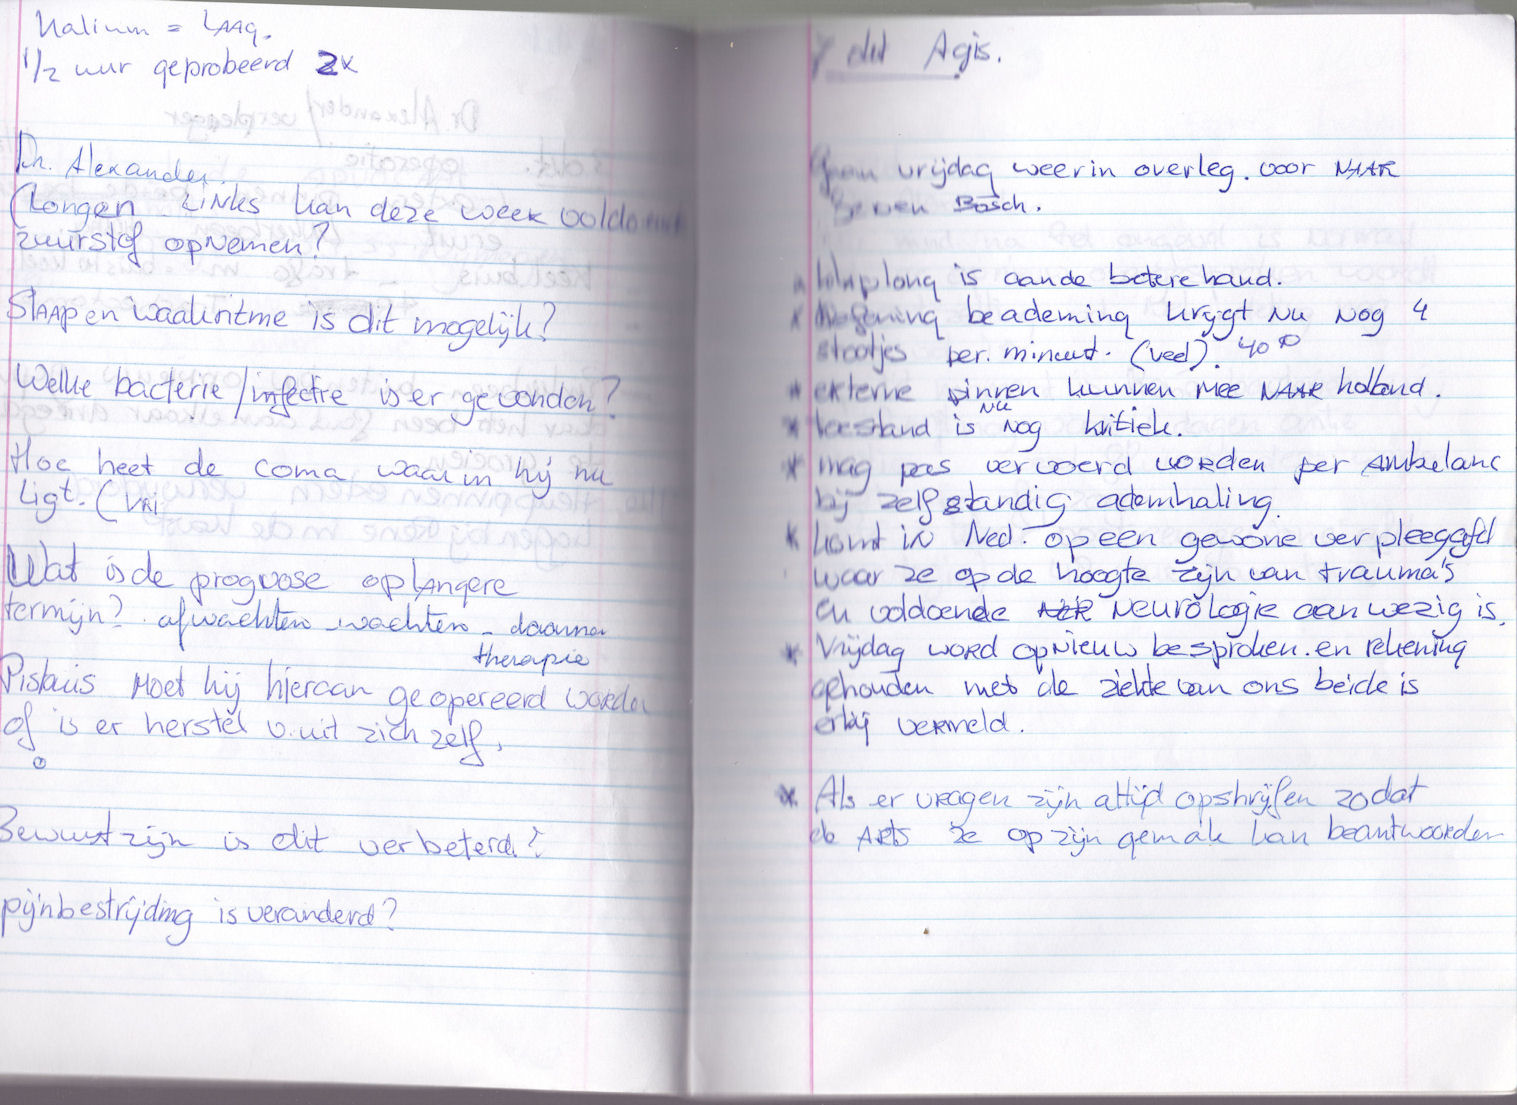 Kalium = LAAg.
1/2 uur geprobeerd 2x
Dr. Alexander.
(Longen LINKS kan deze week voldoende
zuurstof opnemen?
SlAAp en waakritme is dit mogelijk?
Welke bacterie / infectie is er gevonden?
Hoe heet de coma waar in hij nu
ligt. (vrij
Wat is de prognose op lAngere
termijn? afwachten - wachten - daarna
therapie
Pisbuis Moet hij hieraan geopereerd worden
of is er herstel v.uit zich zelf.
Bewust zijn is dit verbeterd?
pijnbestrijding is veranderd?
dit Agis.
Gaan vrijdag weer in overleg. voor NAAR
Bosch.
* klaplong is aande betere hand.
* beademing krijgt Nu Nog 4
stootjes per. minuut. (veel). 40
* externe pinnen kunnen mee NAAR holland.
* toestand is NU Nog kritiek.
* mag pas vervoerd worden per Ambulanc
bij zelfstandig ademhaling.
* komt in Ned. op een gewone verpleegafd
waar ze op de hoogte zijn van trauma's
en voldoende NEUROlogie aanwezig is.
* Vrijdag word opNieuw besproken. en rekening
gehouden met de ziekte van ons beide is
erbij vermeld.
* Als er vragen zijn altijd opshrijfen zodat
de Arts ze op zijn gemak kan beantwoorden